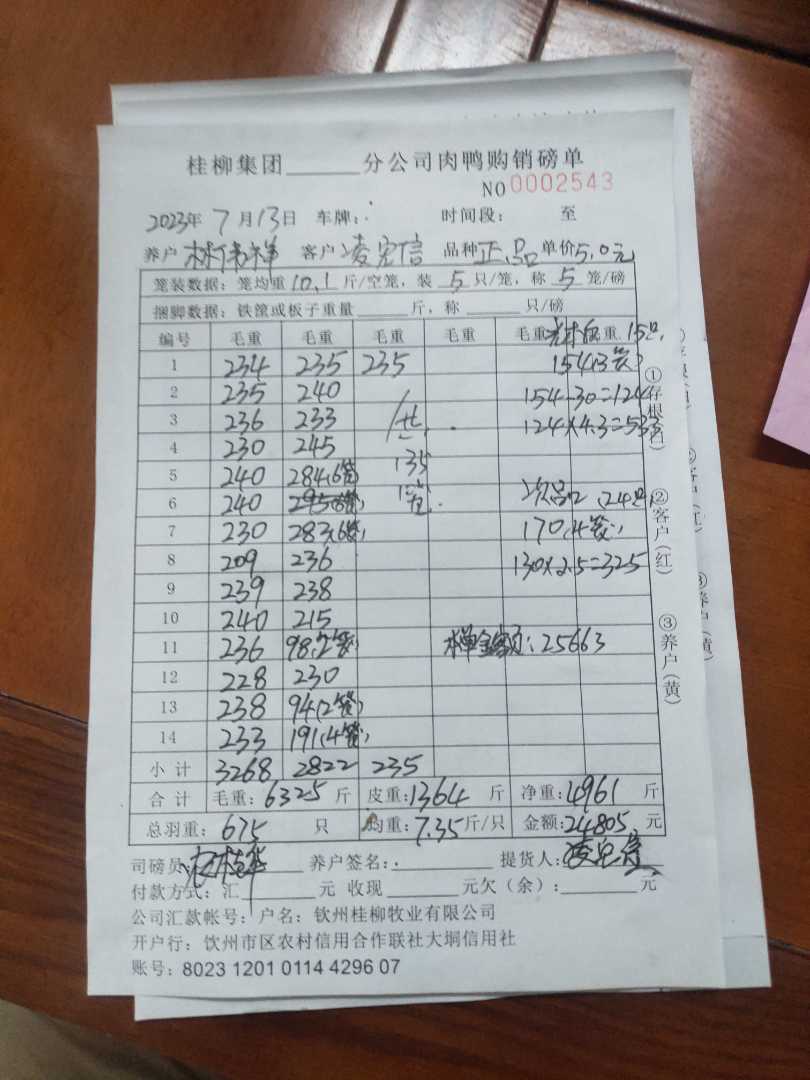 桂柳集团______分公司肉鸭购销磅单
NO 0002543
2023年 7 月 13 日 车牌: 时间段: 至
养户 林伟祥 客户 凌宏信 品种 正品 单价 5.0元
笼装数据: 笼均重 10.1 斤/空笼, 装 5 只/笼, 称 5 笼/磅
捆脚数据: 铁筐或板子重量____斤, 称____只/磅
编号 毛重 毛重 毛重 毛重 毛重 毛重 15只,
1 234 235 235 154(3笼)
2 235 240 154-30=124
3 236 233 共 124×4.3=533
4 230 245
5 240 284(6笼) 135
6 240 笼 次品 (24只)
7 230 283(6笼) 170(4笼)
8 209 236 130×2.5=325
9 239 238
10 240 215
11 236 98(2笼) 本单金额: 25663
12 228 230
13 238 94(2笼)
14 233 191(4笼)
小计 3268 2822 235
合计 毛重: 6325 斤 皮重: 1364 斤 净重: 4961 斤
总羽重: 675 只 均重: 7.35 斤/只 金额: 24805 元
司磅员 养户签名: 提货人: 凌宏信
付款方式: 汇____元 收现____元欠(余):____元
公司汇款帐号: 户名: 钦州桂柳牧业有限公司
开户行: 饮州市区农村信用合作联社大垌信用社
账号: 8023 1201 0114 4296 07
①存根(白)
②客户(红)
③养户(黄)